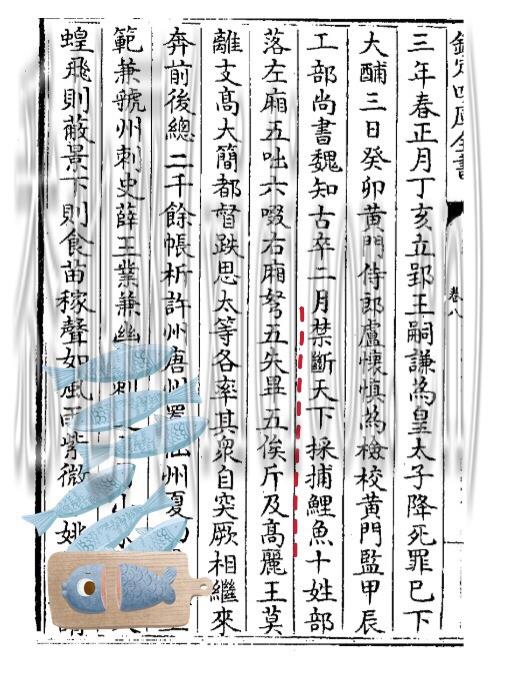 欽定四庫全書
卷八
三年春正月丁亥立郢王嗣謙為皇太子降死罪已下
大酺三日癸卯黃門侍郎盧懷慎為檢校黃門監甲辰
工部尚書魏知古卒二月禁斷天下採捕鯉魚十姓部
落左廂五咄六啜右廂弩五失畢五俟斤及高麗王莫
離支高大簡都督跌思太等各率其衆自突厥相繼來
奔前後總二千餘帳析許州唐州置仙州夏
範兼虢州刺史薛王業兼幽刺
蝗飛則蔽景下則食苗稼聲如風雨紫微姚